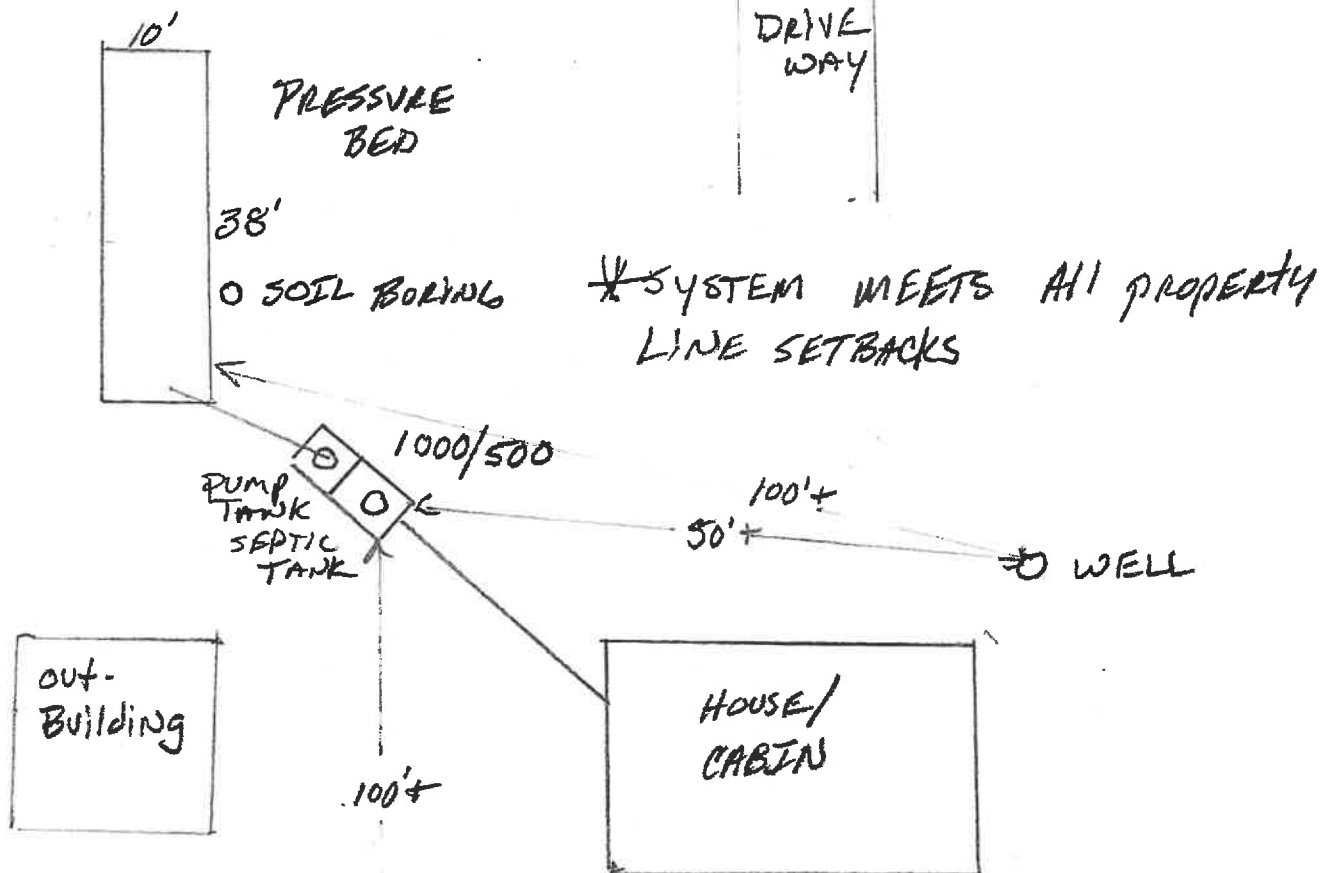 10'
DRIVE
WAY
PRESSURE
BED
38'
O SOIL BORING
* SYSTEM MEETS All property
LINE SETBACKS
1000/500
PUMP
TANK
SEPTIC
TANK
100'+
50'+
WELL
out-
Building
HOUSE/
CABIN
100'+